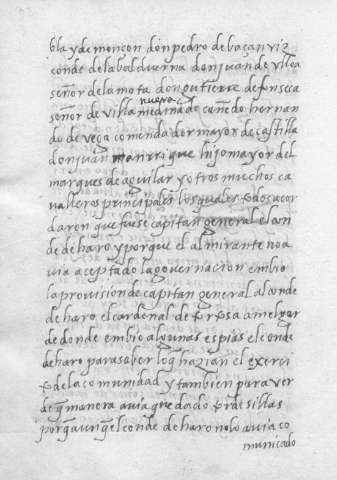 bla y de moncon don pedro de baçan viz
conde de la balduerna don juan de vlloa
señor de la mota don gutierre de fonseca
nueva
señor de villa medina de cañedo hernan
do de vega comendador mayor de castilla
don juan manrrique hijo mayor del
marques de aguilar y otros muchos ca
valleros principales los quales todos acor
daron que fuese capitan general el con
de de haro y porque el almirante no a
via aceptado la governacion embio
la provision de capitan general al conde
de haro el cardenal de tortosa a melgar
de donde embio algunas espias el conde
de haro para saber lo q hazian el exerci
to de la comunidad y tambien para ver
de q manera avia quedado tordesillas
porq aunq el conde de haro no lo avia co
municado